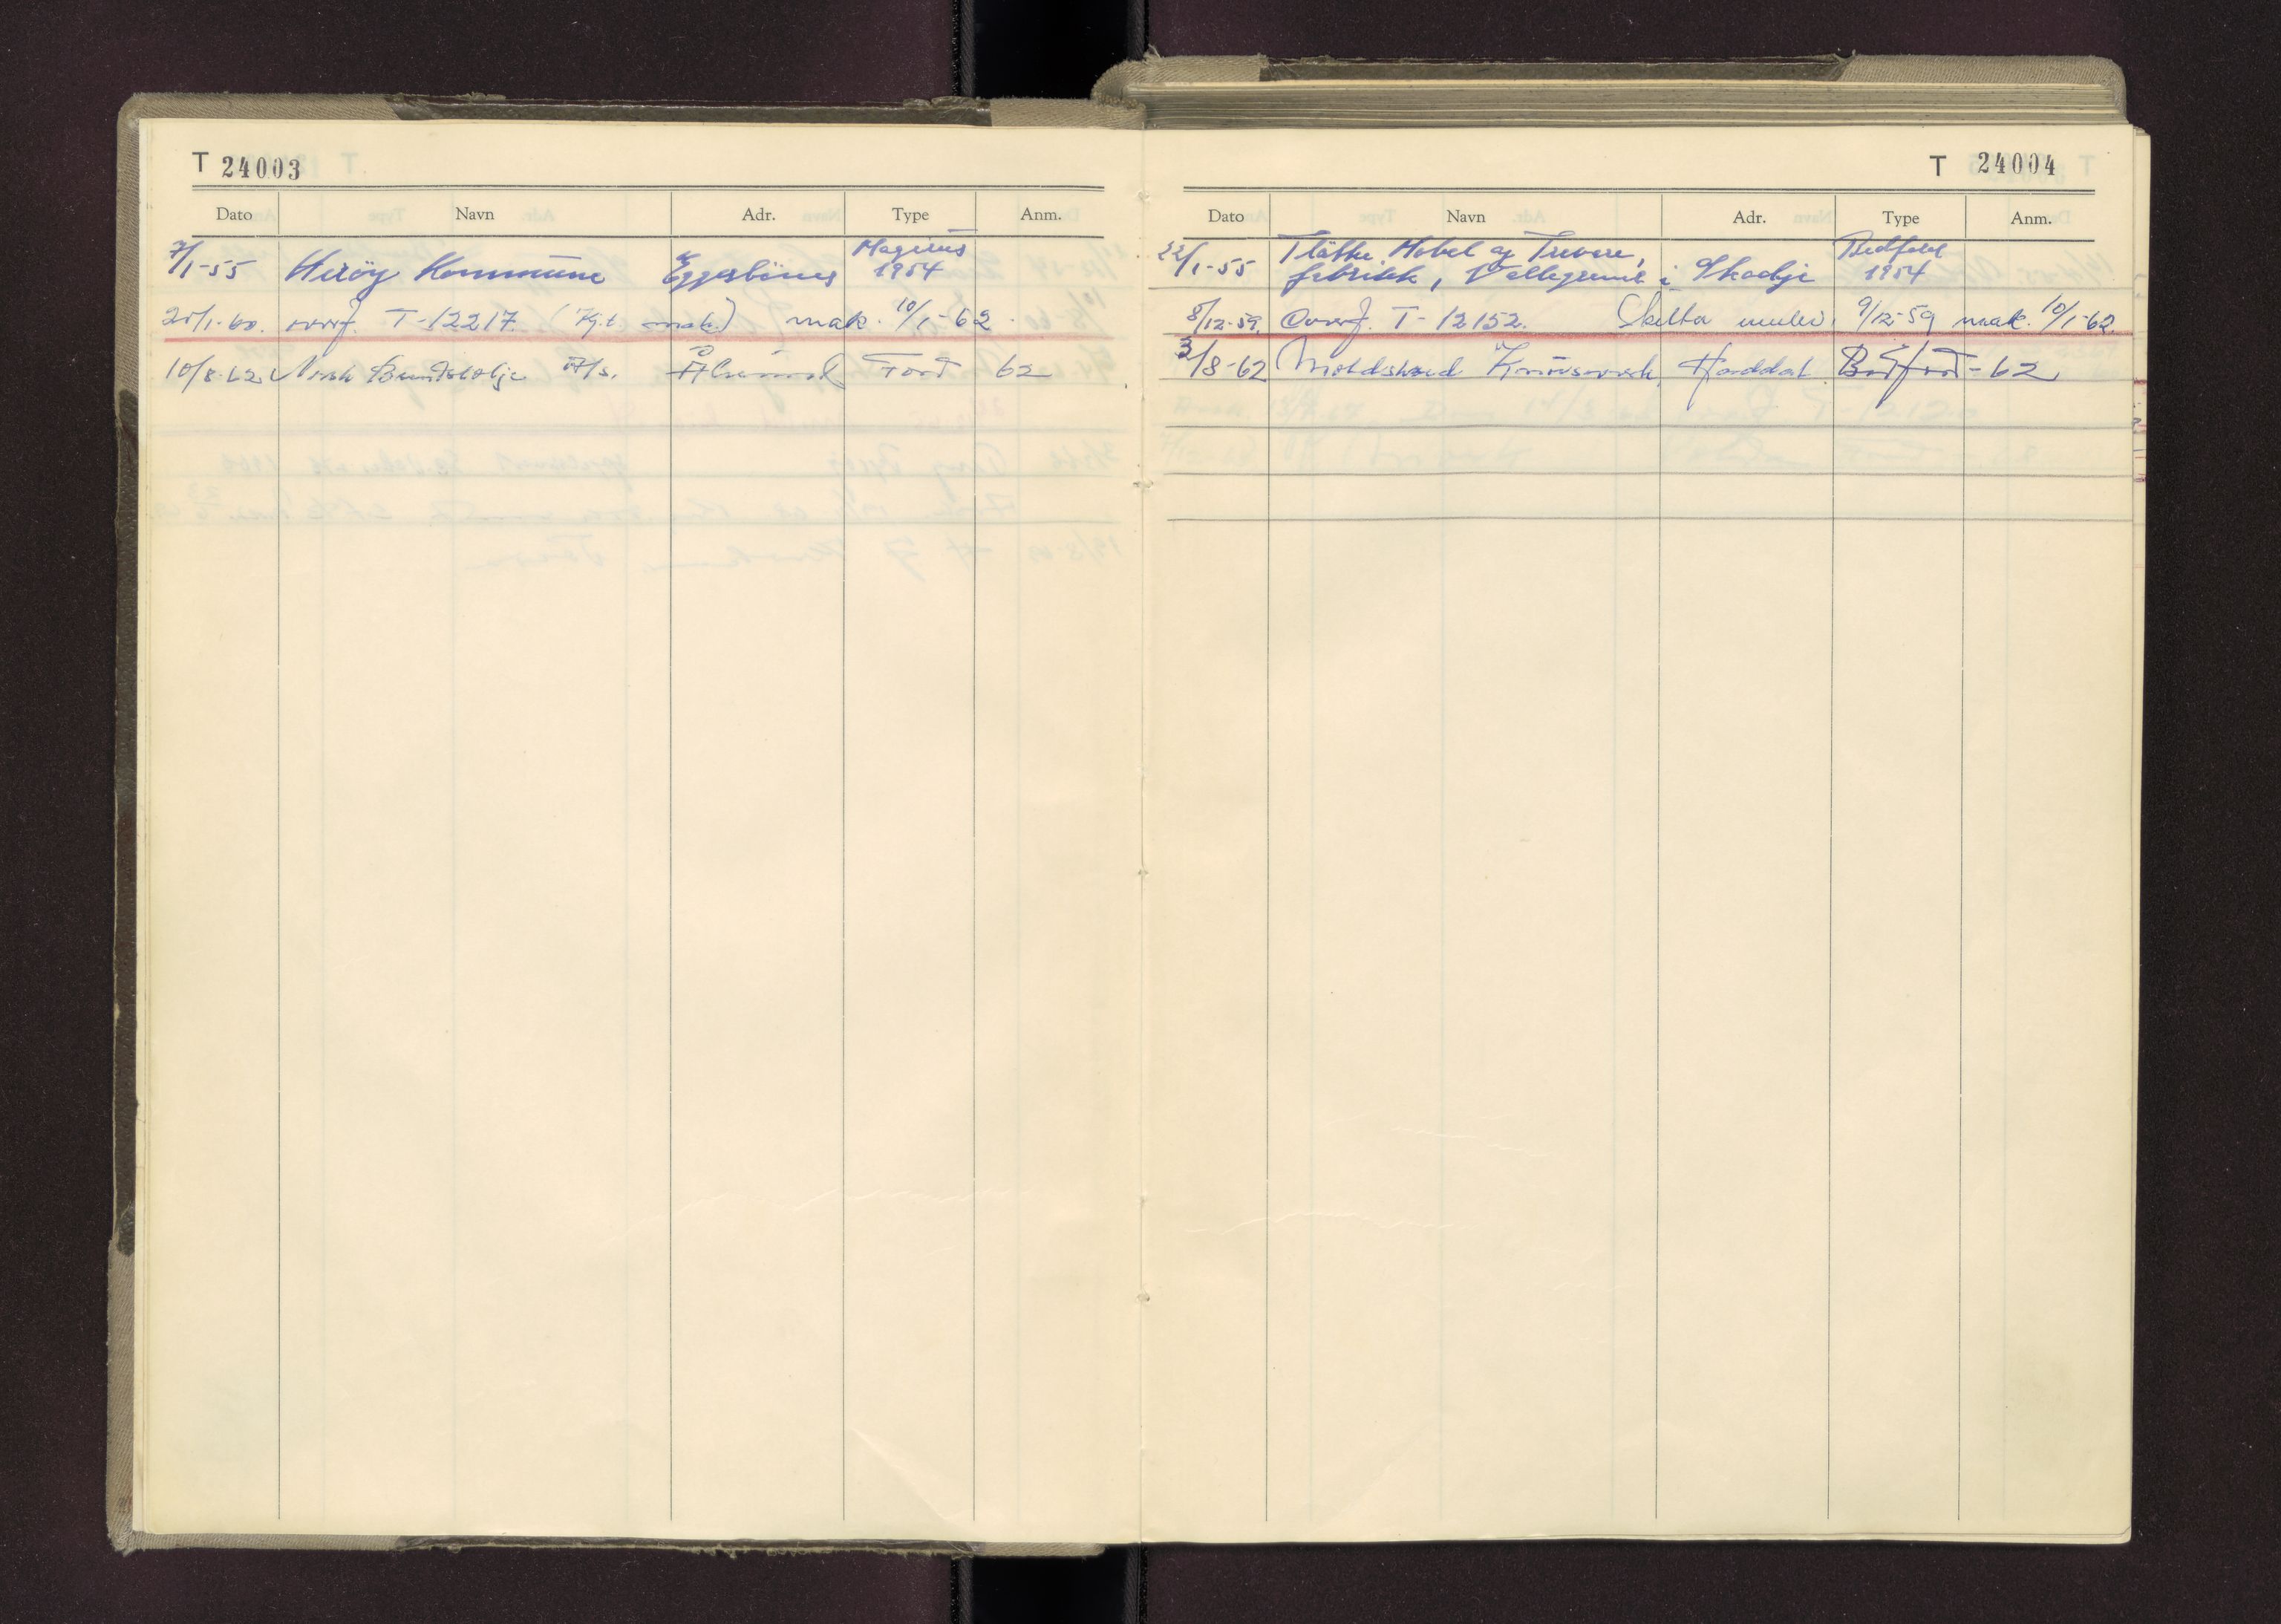 T 24003
Dato Navn Adr. Type Anm.
7/1-55 Heröy Kommune Eggesbönes Magirus 1954
20/1-60. overf. T-12217. mak. 10/1-62.
10/8-62 Norsk Brendselolje A/s. Ålesund Ford 62
T 24004
Dato Navn Adr. Type Anm.
22/1-55 Flötke Möbel og Trevare,
fabrikk, i Skodje Bedford 1954
8/12-59. Overf. T-12152. Skilter 9/12-59 mak. 10/1-62.
3/8-62 Moldskred Knusverk Hoddal Bedford - 62